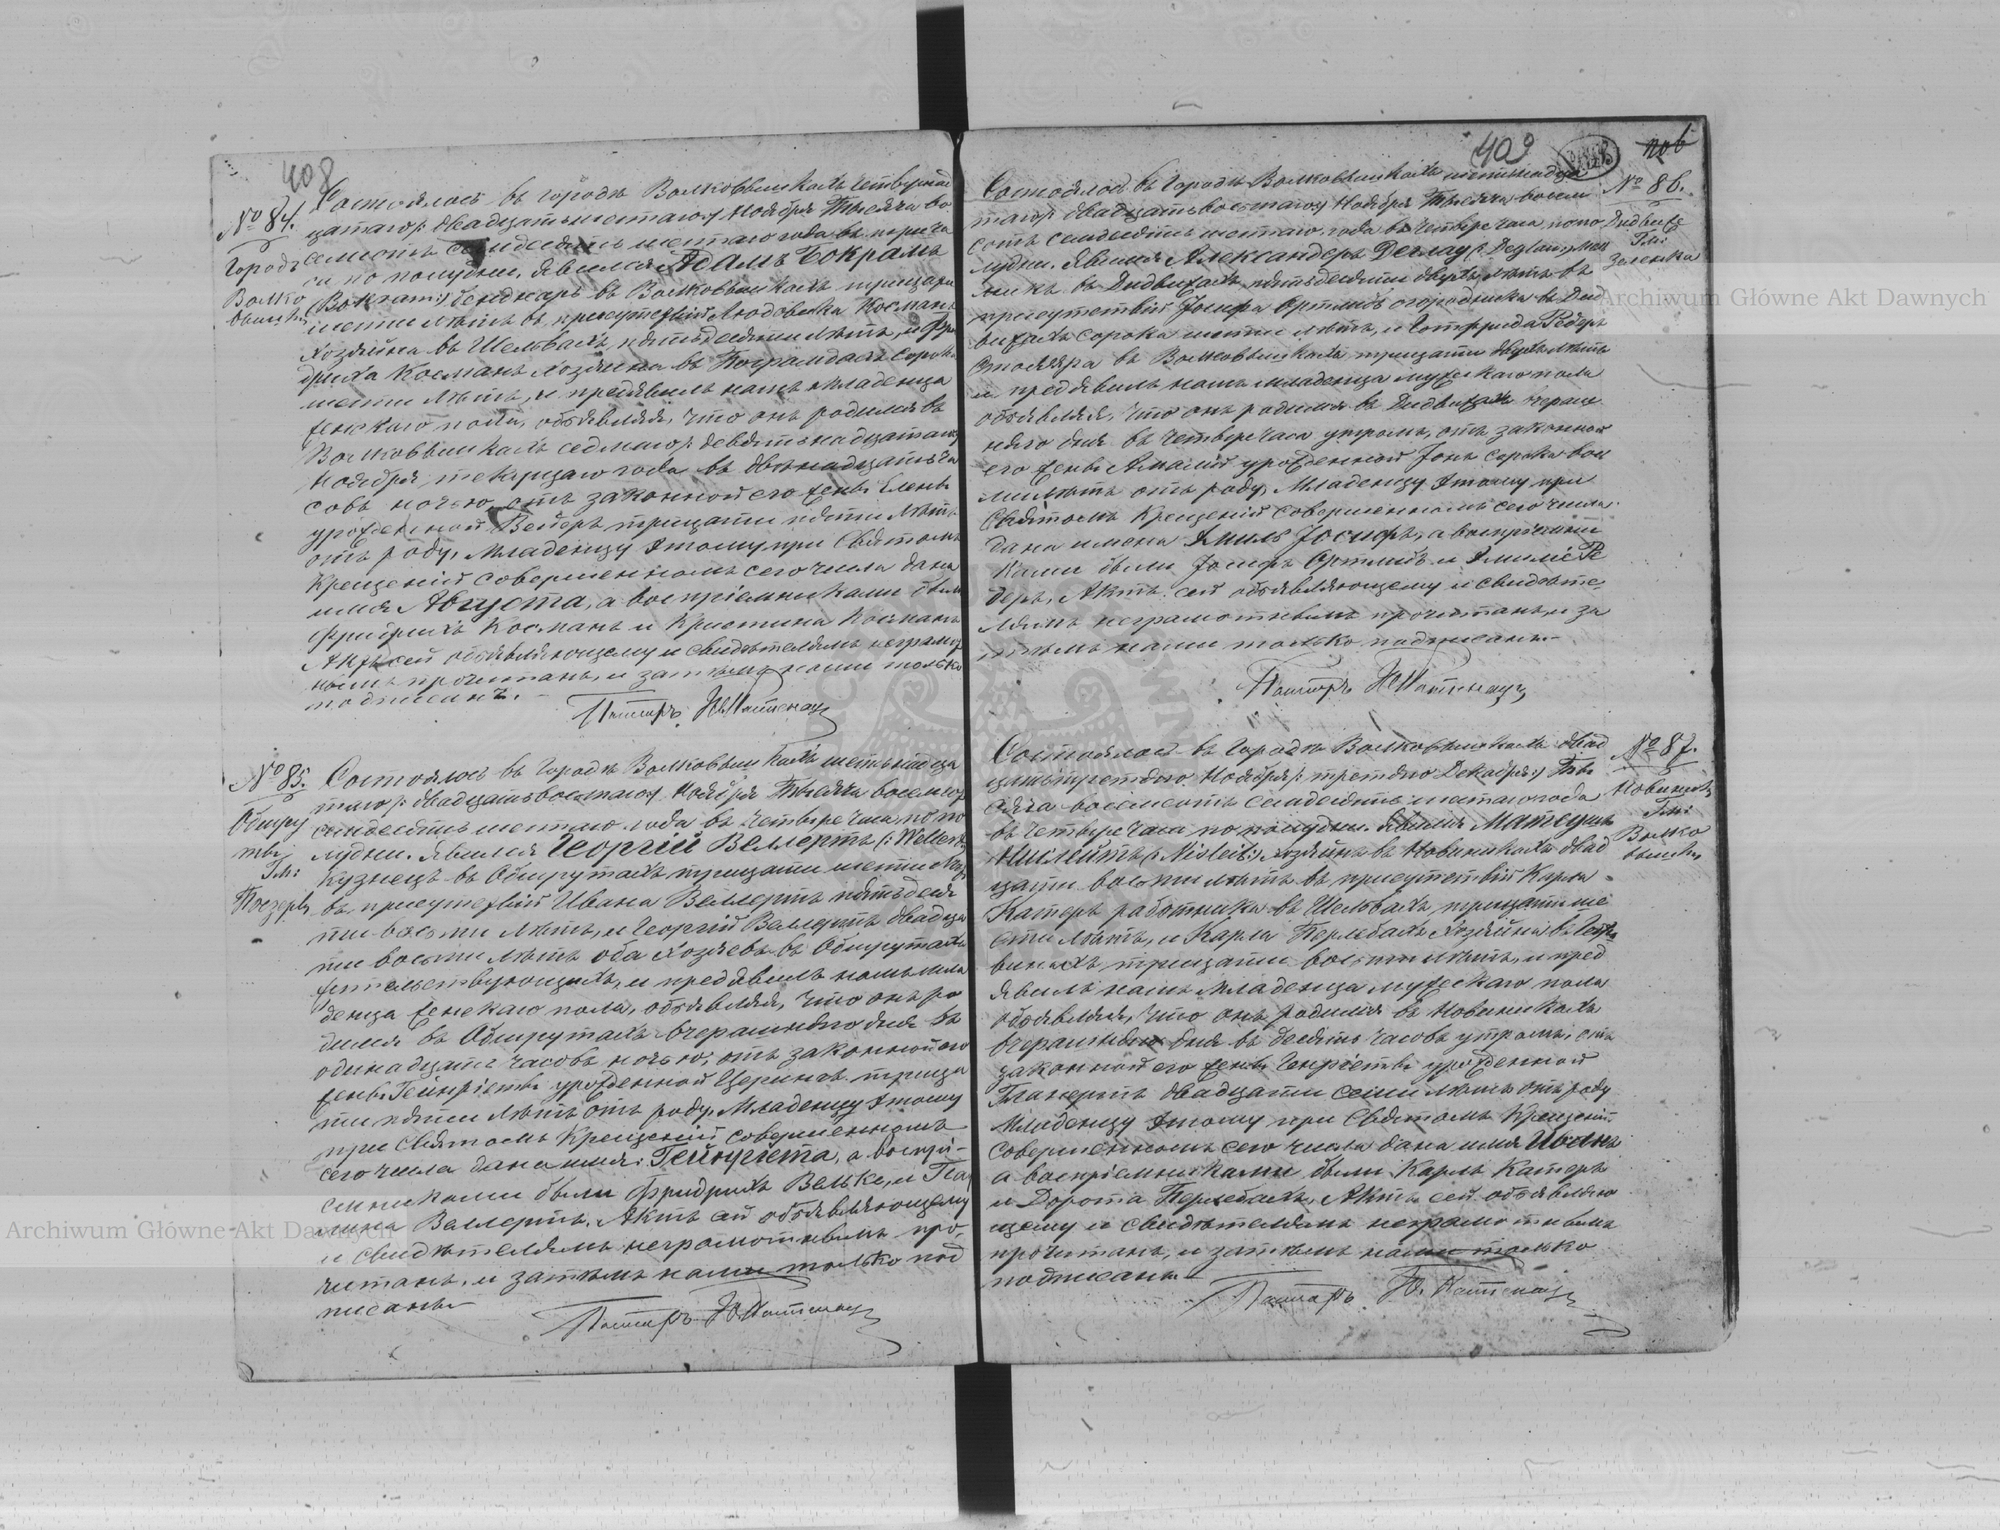 408
№ 84.
Городъ
Волко
вышки
Состоялось въ городѣ Волковышкахъ четырнад
цатаго /: двадцать шестаго :/ Ноября Тысяча во
семьсотъ семьдесятъ шестаго года въ три ча
са по полудни. Явился Адамъ Бокрамъ
(Bokram:) бенднарь въ Волковышкахъ тридцати
шести лѣтъ въ присутствіи Людовика Космана
хозяина въ Шельвахъ, пятьдесяти лѣтъ, и Фри
дриха Косманъ хозяина въ Пограмдахъ сорока
шести лѣтъ, и предъявилъ намъ младенца
женскаго пола, объявляя, что онъ родился въ
Волковышкахъ седьмаго /: девятьнадцатаго :/
Ноября, текущаго года въ двѣнадцать ча
совъ ночью, отъ законной его жены Елены
урожденной Вейеръ тридцати пяти лѣтъ
отъ роду, Младенцу этому при Святомъ
Крещеніи совершенномъ сего числа дана
имя Августа, а воспріемниками были
Фридрихъ Косманъ и Кристина Косманъ
Актъ сей объявляющему и свидѣтелямъ неграмот
нымъ прочитанъ, и затѣмъ нами только
подписанъ. –
Пасторъ
№ 85.
Обшру
ты
Гм:
Поезеры
Состоялось въ городѣ Волковышкахъ шестьнадца
таго /: двадцать восьмаго :/ Ноября Тысяча восемьсотъ
семьдесятъ шестаго года въ четыре часа по по
лудни. Явился Георгій Веллертъ (: Wellert :)
Кузнецъ въ Обшрутахъ тридцати шести лѣтъ,
въ присутствіи Ивана Веллертъ пятьдеся
ти восьми лѣтъ, и Георгій Веллертъ двадца
ти восьми лѣтъ оба хозяевъ въ Обшрутахъ
жительствующихъ, и предъявилъ намъ мла
денца женскаго пола, объявляя, что онъ ро
дился въ Обшрутахъ вчерашняго дня въ
одинадцать часовъ ночью, отъ законной его
жены Гейнріеты урожденной Церинъ тридца
ти пяти лѣтъ отъ роду. Младенцу этому
при Святомъ Крещеніи совершенномъ
сего числа дана имя: Гейнріета, а воспрі-
емниками были Фридрихъ Вельке, и Пау
лина Веллертъ. Актъ сей объявляющему
и свидѣтелямъ неграмотнымъ про-
читанъ, и затѣмъ нами только под
писанъ.
Пасторъ
409
№ 86.
Дидвиже
Гм:
Зеленка
Состоялось въ городѣ Волковышкахъ шестьнадца
таго /: двадцать восьмаго :/ Ноября Тысяча восемь
сотъ семьдесятъ шестаго года въ четыре часа по по
лудни. Явился Александеръ Деглау (: Deglau :)
въ Дидвижахъ пятьдесяти двухъ лѣтъ въ
присутствіи Іосифа Ортлибъ огородника въ Дид
вижахъ сорока шести лѣтъ, и Готфрида Редеръ
Столяра въ Волковышкахъ тридцати двухъ лѣтъ
и предъявилъ намъ младенца мужскаго пола
объявляя, что онъ родился въ Дидвижахъ вчераш
няго дня въ четыре часа утромъ, отъ законной
его жены Амаліи урожденной Іонъ сорока вось
ми лѣтъ отъ роду. Младенцу этому при
Святомъ Крещеніи совершенномъ сего числа
дана имена Эмиль Іосифъ, а воспріемни
ками были Іосифъ Ортлибъ и Эмилія Ре
деръ. Актъ сей объявляющему и свидѣте-
лямъ неграмотнымъ прочитанъ, и за
тѣмъ нами только подписанъ. –
Пасторъ
№ 87.
Новиники
Гм:
Волко
вышки
Состоялось въ городѣ Волковышкахъ двад
цать третьяго Ноября /: третьяго Декабря :/ Ты
сяча восемьсотъ семьдесятъ шестаго года
въ четыре часа по полудни. Явился Матеушъ
Нислейтъ (: Nisleit :) хозяинъ въ Новиникахъ двад
цати восьми лѣтъ въ присутствіи Карла
Катеръ работника въ Шельвахъ тридцати ше
сти лѣтъ, и Карла Перлебахъ хозяина въ
тридцати восьми лѣтъ, и пред
явилъ намъ младенца мужскаго пола
объявляя, что онъ родился въ Новиникахъ
вчерашняго дня въ десять часовъ утромъ, отъ
законной его жены Генріеты урожденной
двадцати семи лѣтъ отъ роду
Младенцу этому при Святомъ Крещеніи
совершенномъ сего числа дана имя Иоанъ
а воспріемниками были Карлъ Катеръ
и Дорота Перлебахъ, Актъ сей объявляю
щему и свидѣтелямъ неграмотнымъ
прочитанъ, и затѣмъ нами только
подписанъ.
Пасторъ
Archiwum Główne Akt Dawnych
Archiwum Główne Akt Dawnych